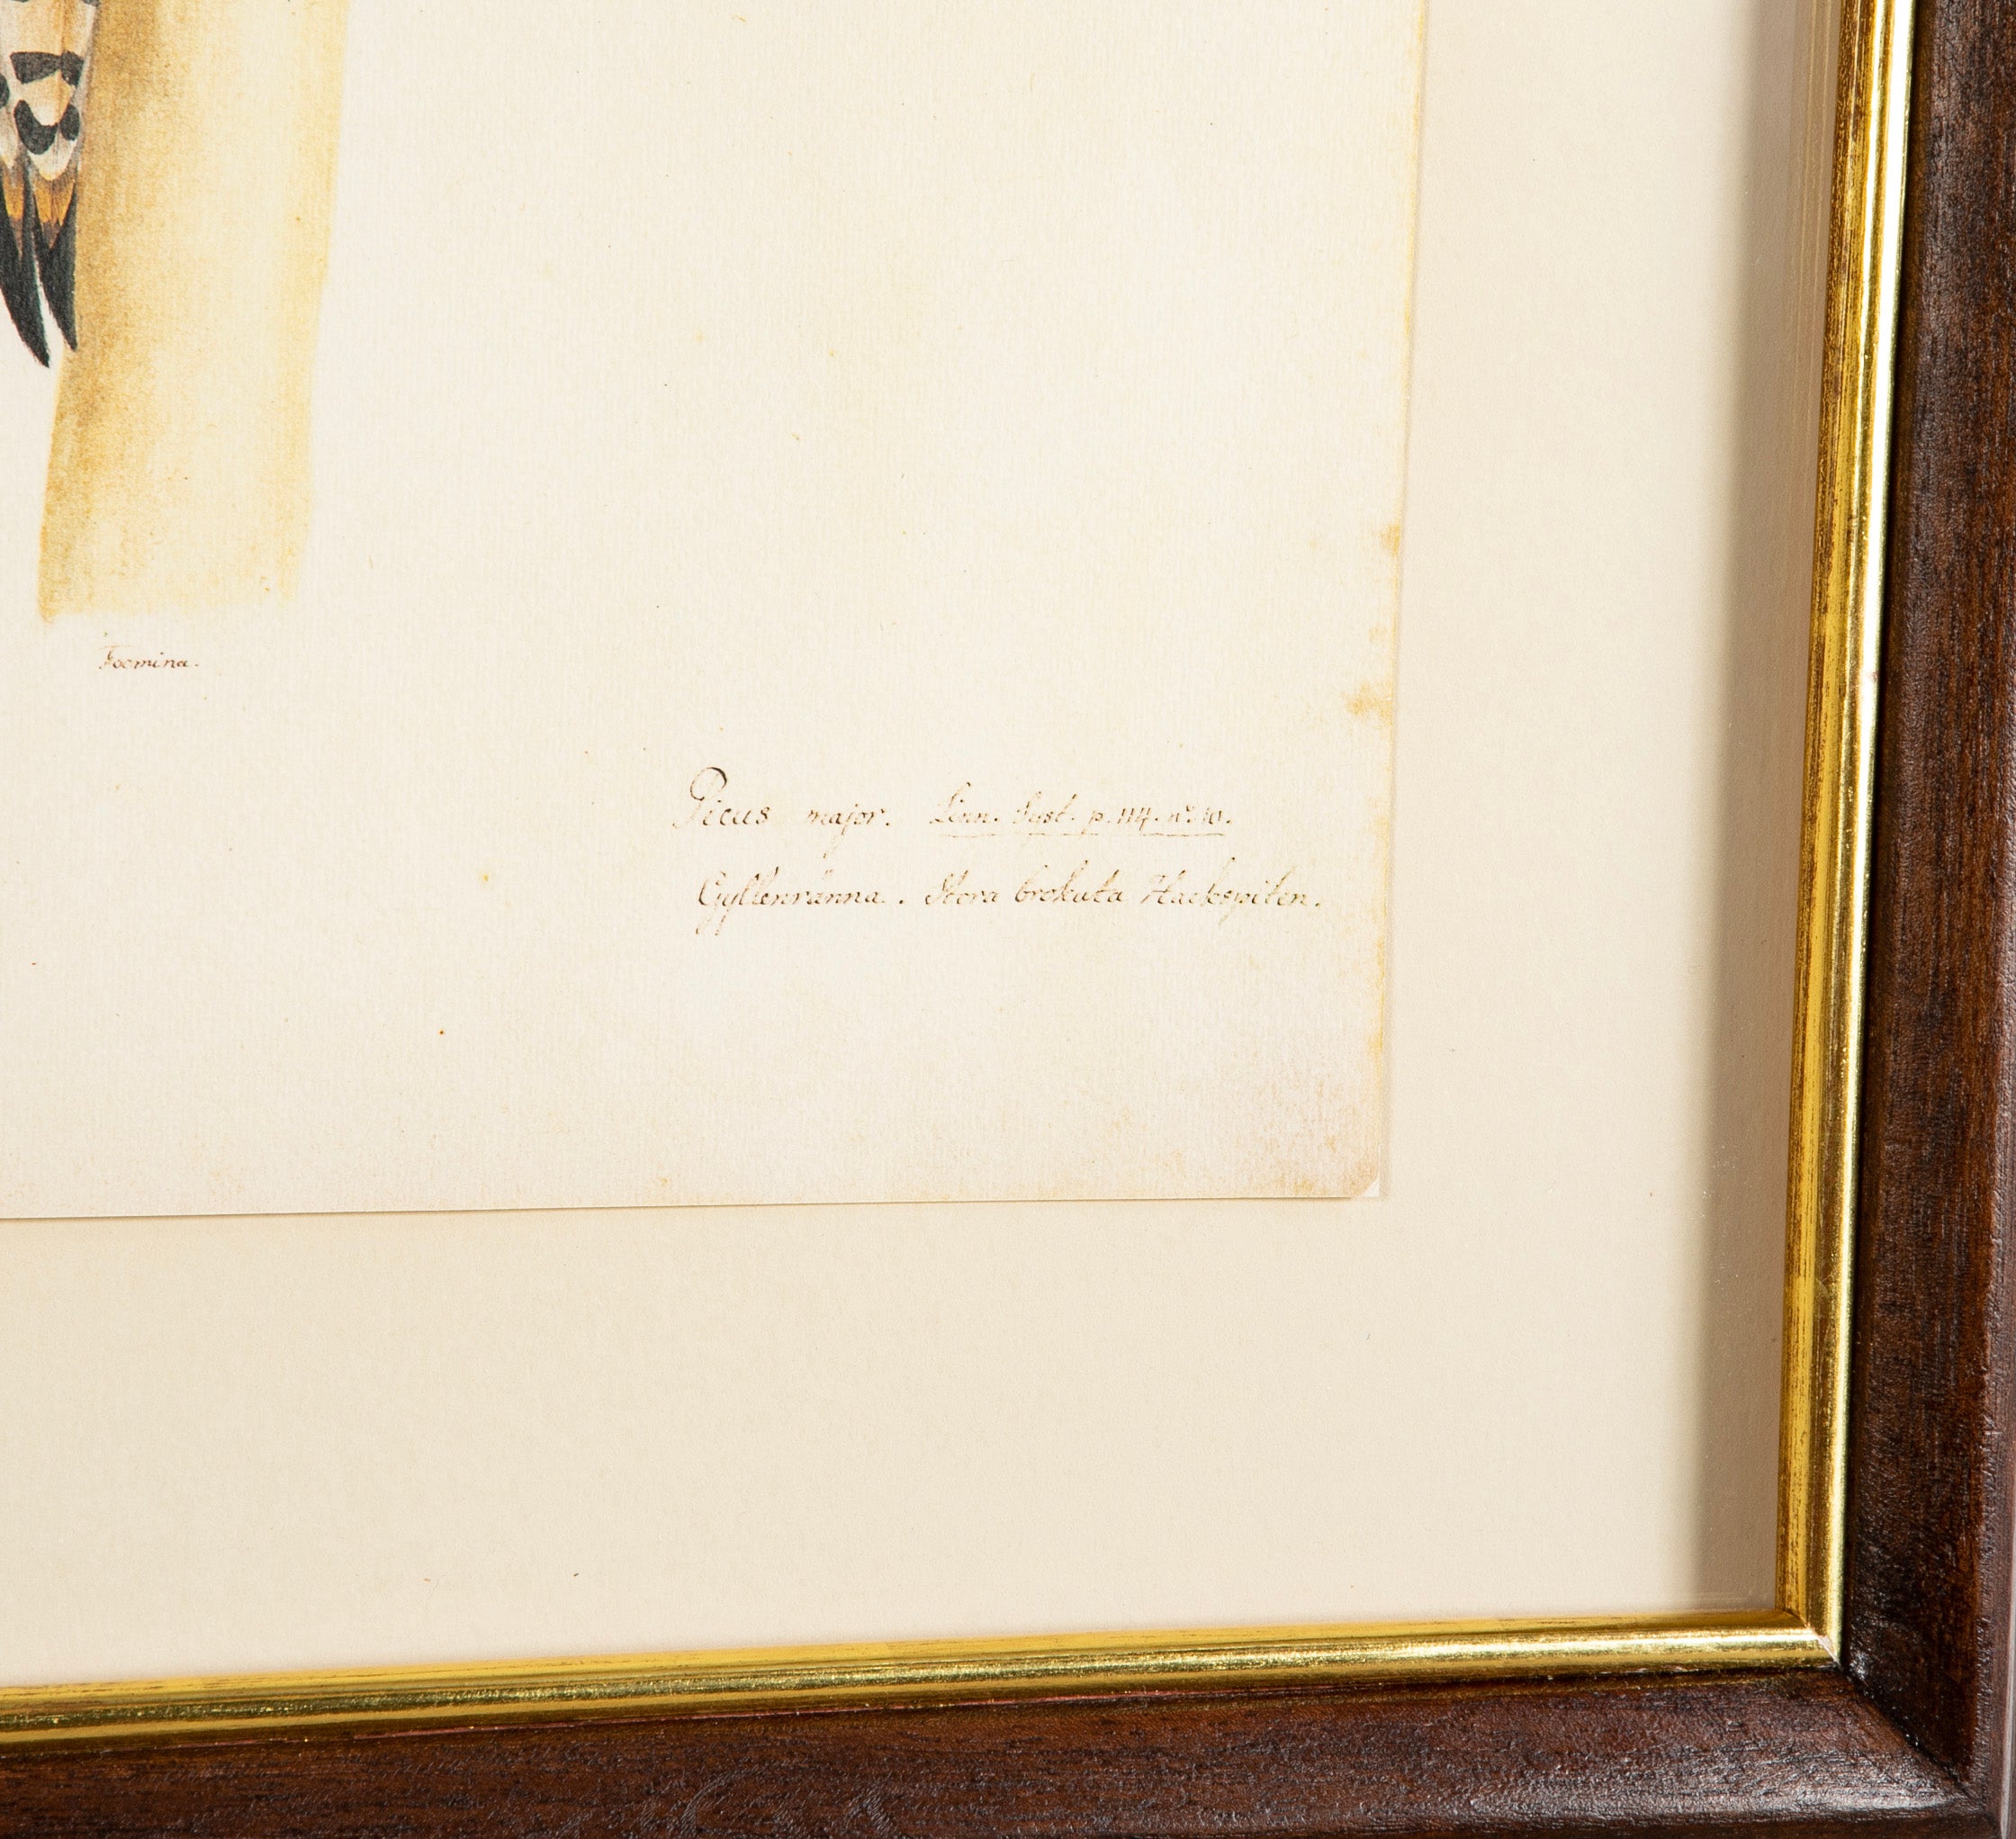 Foemina.
Picus major. Linn. Syst. p. 114. n°. 10.
Gyllenränna. Stora brokuta Hackspiten.